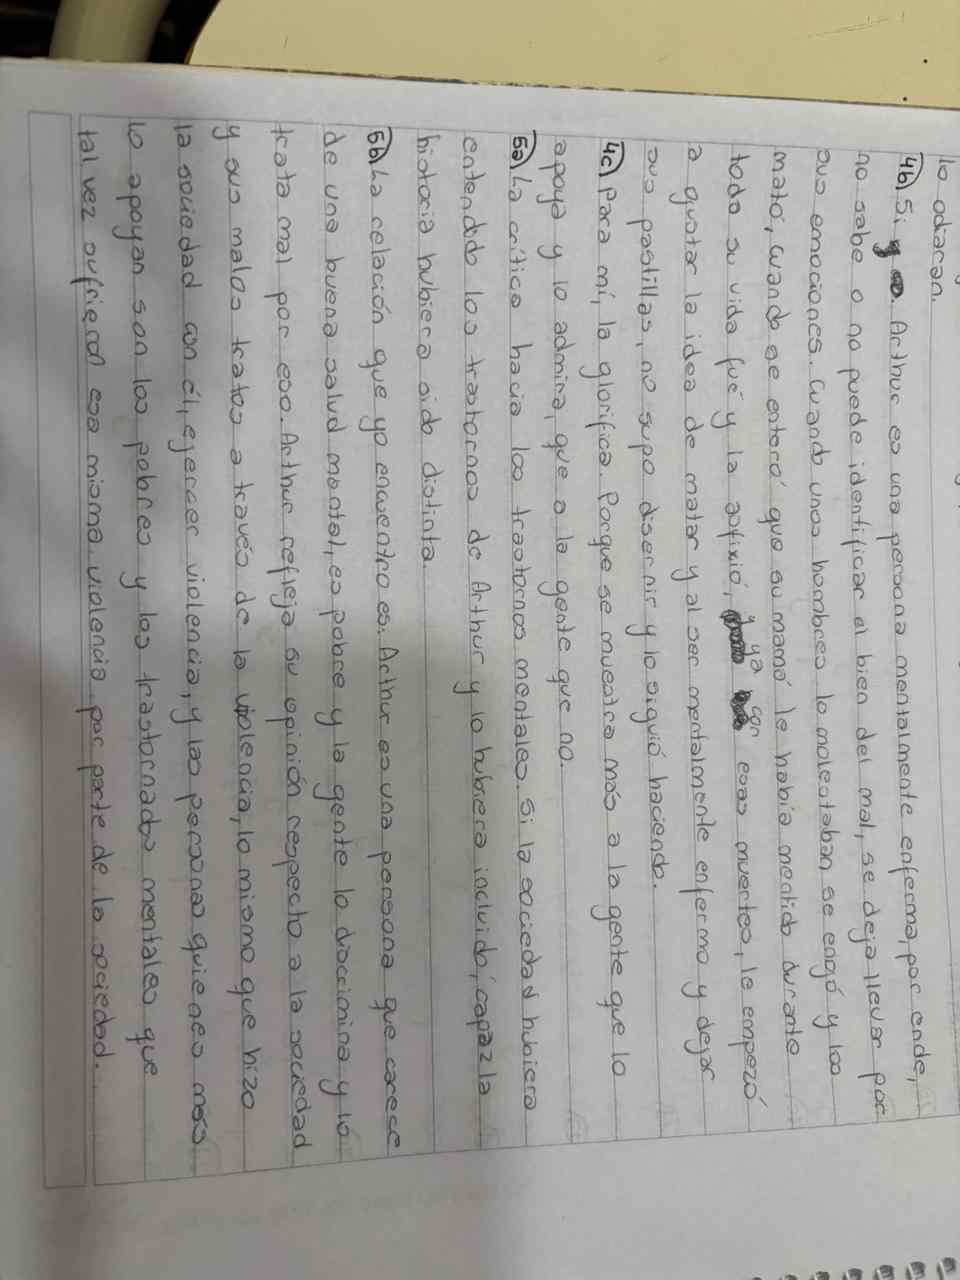 lo odiaran.
4b) Si. Arthur es una persona mentalmente enferma, por ende,
no sabe o no puede identificar el bien del mal, se deja llevar por
sus emociones. Cuando unos hombres lo molestaban se enojó y los
mató, cuando se enteró que su mamá le había mentido durante
toda su vida fué y la asfixió, y ya con esas muertes, le empezó
a gustar la idea de matar y al ser mentalmente enfermo y dejar
sus pastillas, no supo disernir y lo siguió haciendo.
4c) Para mí, la glorifica. Porque se muestra más a la gente que lo
apoya y lo admira, que a la gente que no.
5a) La crítica hacia los trastornos mentales. Si la sociedad hubiera
entendido los trastornos de Arthur y lo hubiera incluido, capaz la
historia hubiera sido distinta.
5b) La relación que yo encuentro es: Arthur es una persona que carece
de una buena salud mental, es pobre y la gente lo discrimina y lo
trata mal por eso. Arthur refleja su opinión respecto a la sociedad
y sus malos tratos a través de la violencia, lo mismo que hizo
la sociedad con él, ejercer violencia, y las personas quienes más
lo apoyan son los pobres y los trastornados mentales que
tal vez sufrieron esa misma violencia por parte de la sociedad.